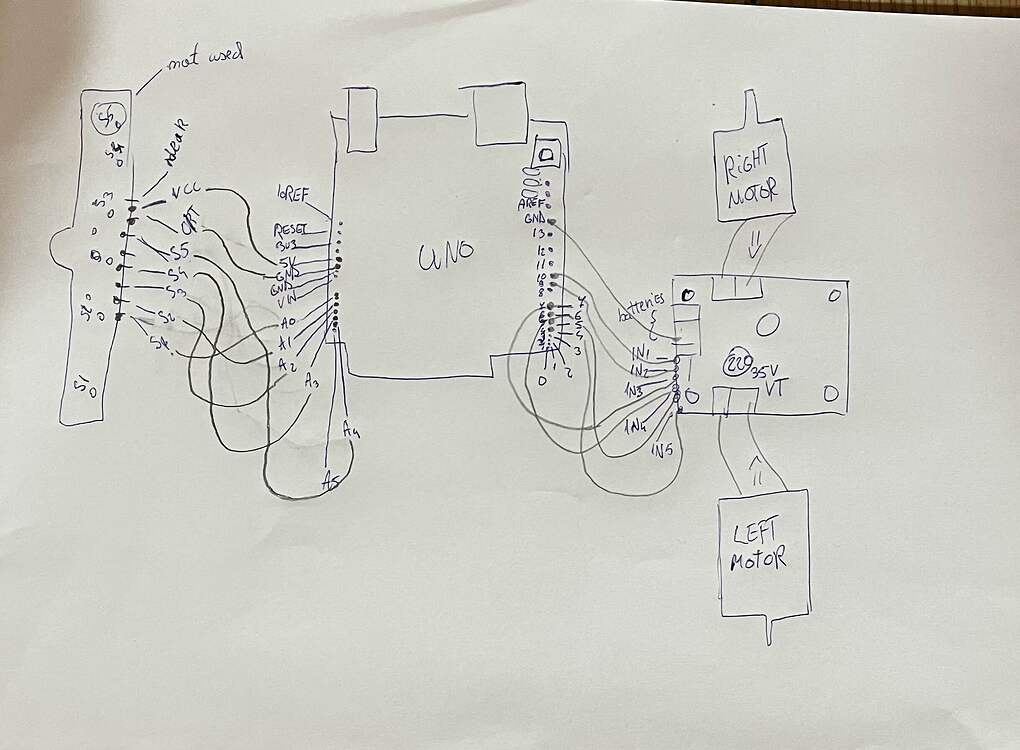 not used
S5
S4
S3
S2
S1
Near
VCC
S5
S4
S3
S2
IOREF
RESET
3V3
5V
GND
GND
VIN
A0
A1
A2
A3
A4
A5
UNO
AREF
GND
13
12
11
10
9
8
7
6
5
4
3
2
1
0
RiGHT
MOTOR
batteries
IN1
IN2
IN3
IN4
IN5
220
35V
VT
LEFT
MOtOR